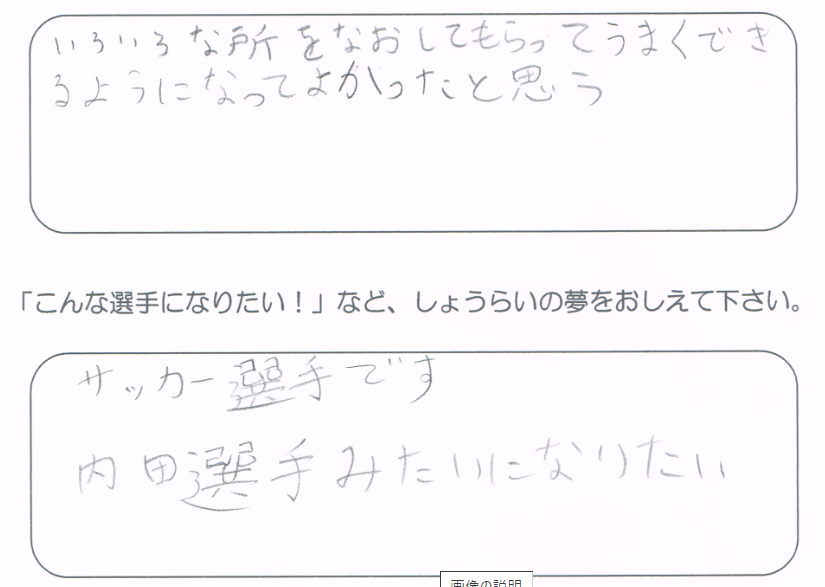 いろいろな所をなおしてもらってうまくでき
るようになってよかったと思う
「こんな選手になりたい！」など、しょうらいの夢をおしえて下さい。
サッカー選手です
内田選手みたいになりたい
画像の説明